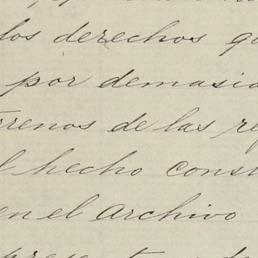 los derechos
por demasia
rrenos de las re
l hecho const
en el archivo